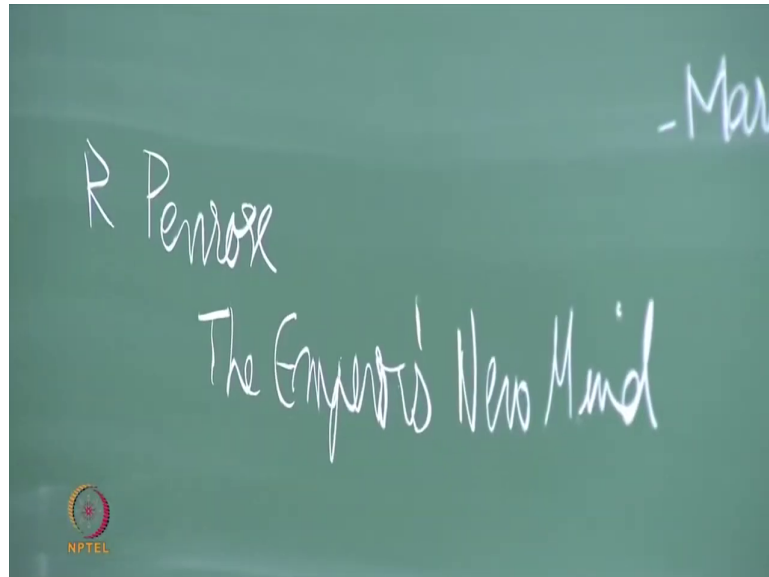 - Mar
R Penrose
The Emperor's New Mind
NPTEL